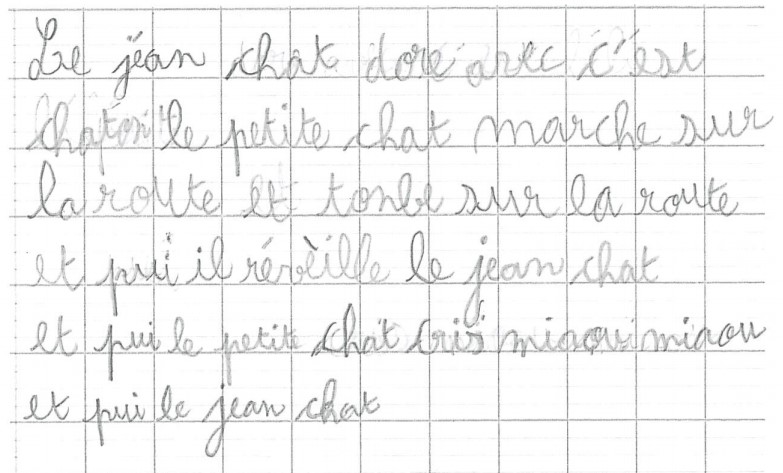 Le jean chat dore avec c'est
chaton le petite chat marche sur
la route et tonbe sur la route
et pui il révèille le jean chat
et pui le petit chat cris miaou miaou
et pui le jean chat